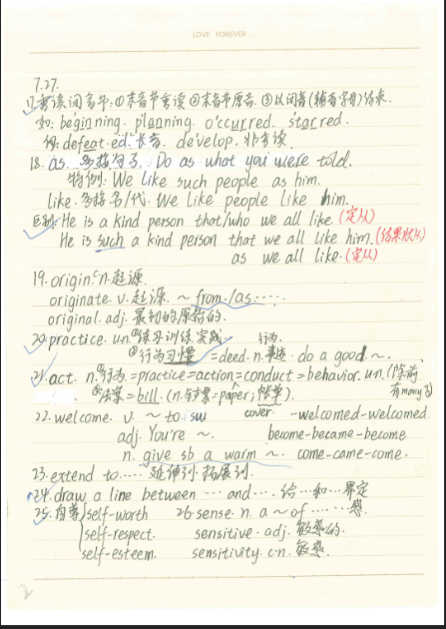 LOVE FOREVER....
7.27.
17. 重读闭音节:①末音节重读 ②末音节原音 ③以闭音(辅音字母)结束.
如: beginning. planning. o'ccurred. starred.
例: defeat.ed. 长音. de'velop. 非重读.
18. as. 多接句子. Do as what you were told.
特例: We like such people as him.
like. 多接名/代. We like people like him.
区别: He is a kind person that/who we all like. (定从)
He is such a kind person that we all like him. (结果状从)
as we all like. (定从)
19. origin. cn. 起源.
originate. v. 起源. ~ from/as.....
original. adj. 最初的原始的.
20. practice. un. ①练习 训练 实践 行为.
②行为习惯 = deed. n. 事迹. do a good ~.
21. act. n. ①行为. = practice = action = conduct = behavior. un. (除前有many等)
②法案 = bill. (n. 钞票 = paper; 帐单).
22. welcome. v. ~ to cover -welcomed-welcomed.
adj. You're ~. become-became-become
n. give sb a warm ~. come-came-come.
23. extend to..... 延伸到. 拓展到.
24. draw a line between ... and.... 给...和...界定
25. 自尊 self-worth 26. sense. n. a ~ of .... ...感.
self-respect. sensitive. adj. 敏感的.
self-esteem. sensitivity. c.n. 敏感.